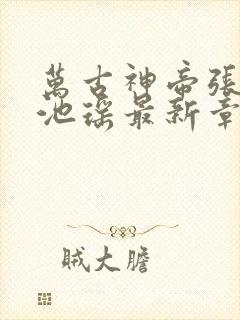 萬古神帝張
池瑤最新章
賊大膽